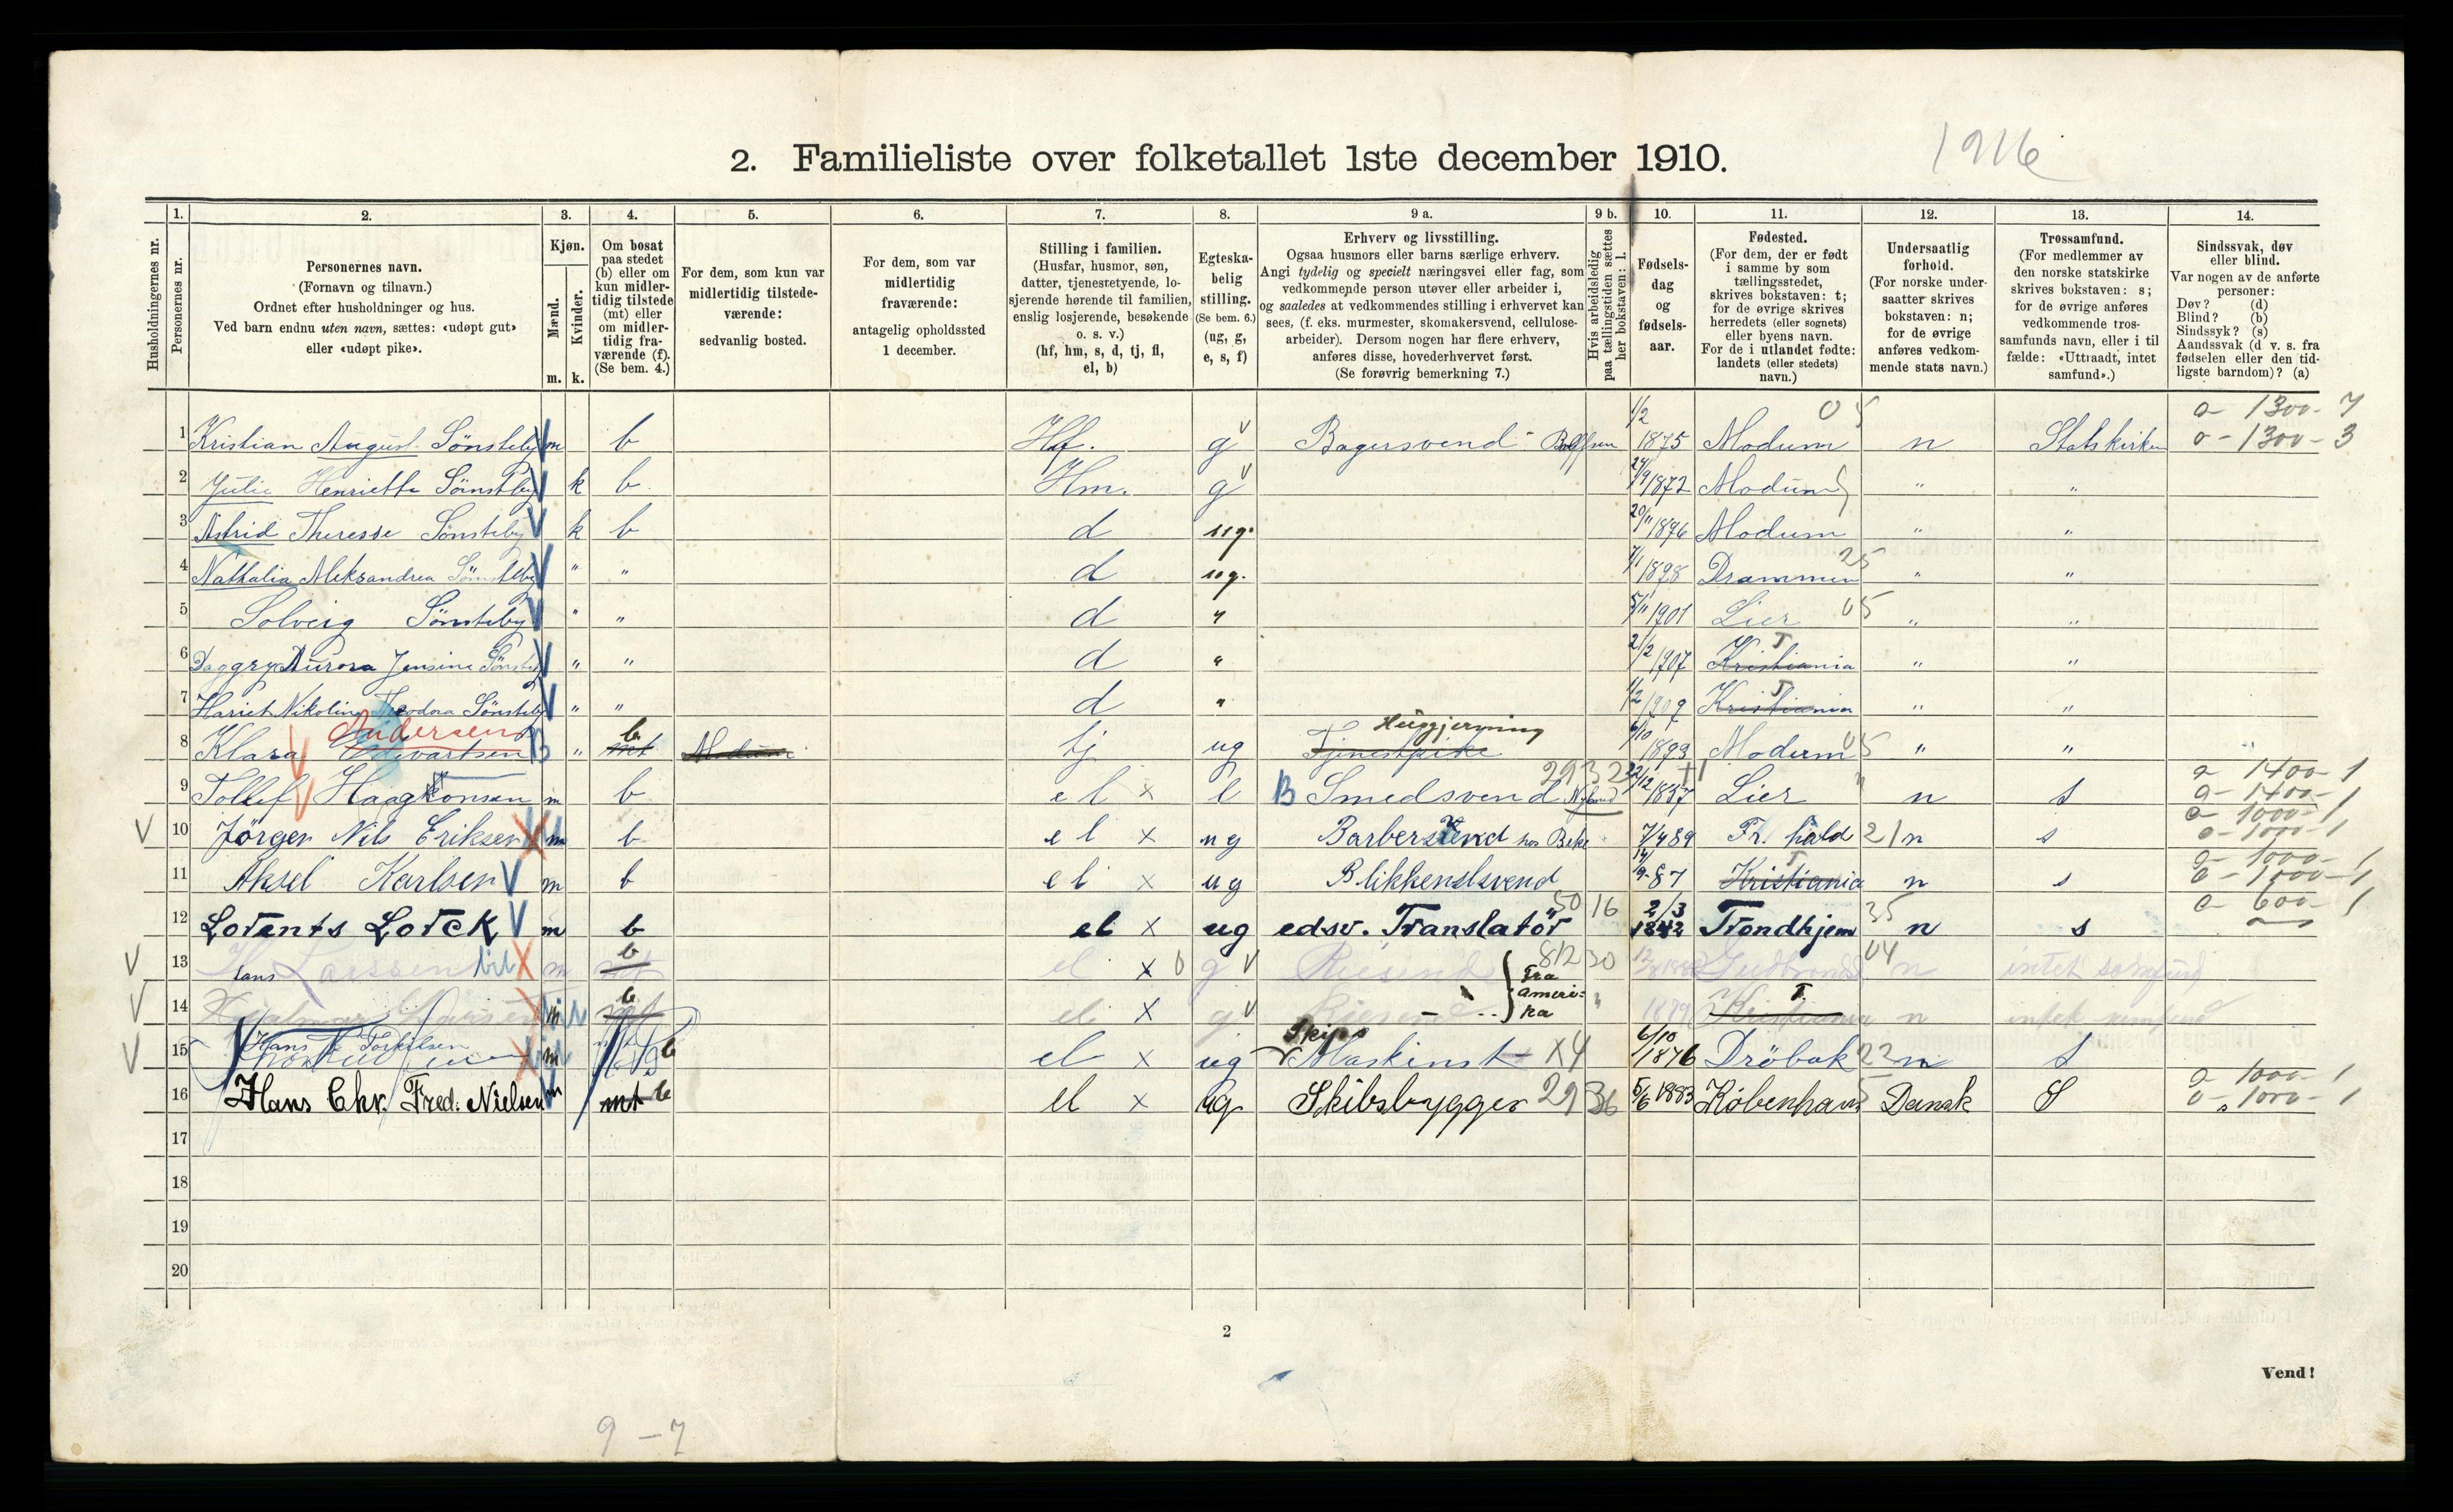 1916
2. Familieliste over folketallet 1ste december 1910.
Husholdningernes nr.
1. 2. 3. 4. 5. 6. 7. 8. 9 a. 9 b. 10. 11. 12. 13. 14.
Personernes nr.
Personernes navn.
(Fornavn og tilnavn.)
Ordnet efter husholdninger og hus.
Ved barn endnu uten navn, sættes: «udøpt gut»
eller «udøpt pike».
Kjøn.
Mænd.
Kvinder.
m. k.
Om bosat
paa stedet
(b) eller om
kun midler-
tidig tilstede
(mt) eller
om midler-
tidig fra-
værende (f).
(Se bem. 4.)
For dem, som kun var
midlertidig tilstede-
værende:
sedvanlig bosted.
For dem, som var
midlertidig
fraværende:
antagelig opholdssted
1 december.
Stilling i familien.
(Husfar, husmor, søn,
datter, tjenestetyende, lo-
sjerende hørende til familien,
enslig losjerende, besøkende
o. s. v.)
(hf, hm, s, d, tj, fl,
el, b)
Egteska-
belig
stilling.
(Se bem. 6.)
(ug, g,
e, s, f)
Erhverv og livsstilling.
Ogsaa husmors eller barns særlige erhverv.
Angi tydelig og specielt næringsvei eller fag, som
vedkommende person utøver eller arbeider i,
og saaledes at vedkommendes stilling i erhvervet kan
sees, (f. eks. murmester, skomakersvend, cellulose-
arbeider). Dersom nogen har flere erhverv,
anføres disse, hovederhvervet først.
(Se forøvrig bemerkning 7.)
Hvis arbeidsledig
paa tællingstiden sættes
her bokstaven: l.
Fødsels-
dag
og
fødsels-
aar.
Fødested.
(For dem, der er født
i samme by som
tællingsstedet,
skrives bokstaven: t;
for de øvrige skrives
herredets (eller sognets)
eller byens navn.
For de i utlandet fødte:
landets (eller stedets)
navn.)
Undersaatlig
forhold.
(For norske under-
saatter skrives
bokstaven: n;
for de øvrige
anføres vedkom-
mende stats navn.)
Trossamfund.
(For medlemmer av
den norske statskirke
skrives bokstaven: s;
for de øvrige anføres
vedkommende tros-
samfunds navn, eller i til
fælde: «Uttraadt, intet
samfund».)
Sindssvak, døv
eller blind.
Var nogen av de anførte
personer:
Døv? (d)
Blind? (b)
Sindssyk? (s)
Aandssvak (d v. s. fra
fødselen eller den tid-
ligste barndom)? (a)
1 Kristian August Sönsteby m b Hf. g Bagersvend 1/2 1875 Modum 05 n Statskirken a- 1300- 7 o- 1300- 3
2 Julie Henriette Sönsteby k b. Hm. g 24/9 1872 Modum " "
3 Astrid Theresse Sönsteby k b d ug. 20/11 1896 Modum " "
4 Nathalia Aleksandrea Sönsteby " " d ug. 1/1 1898 Drammen 25 " "
5 Solveig Sönsteby " " d " 5/11 1901 Lier 05 " "
6 Daggry Aurora Jensine Sönsteby " " d " 21/2 1907 Kristiania T " "
7 Hariet Nikoline Theodora Sönsteby " " d " 1/2 1909 Kristiania T " "
8 Klara Edvartsen Andersen " mt b Modum tj ug Tjenestpike Husgjerning 6/10 1893 Modum 05 " "
9 Tollef Haagkonsen m b el x e B Smedsvend Nyland 2932 22/12 1837 Lier " n s a- 1400- 1 o- 1400- 1
10 Jörgen Nils Eriksen m b el x ug Barbersvend hos Beke 7/4 89 Fr. hald 21 n s a- 1000- 1 o- 1000- 1
11 Aksel Karlsen m b el x ug Blikkenslsvend 14/9 87 Kristiania T n s a- 1000- 1 o- 1000- 1
12 Lorents Lorck m b el x ug edsv. Translatör 50 16 2/3 1842 Trondhjem 35 n s a- 600- 1
13 Hans Larssen m b el x g Reisende 812 30 04 n intet samfund
14 Hjalmar Larsen m b el x g Reisende } Fra Ameri-ka " 1879 Kristiania T. n intet samfund
15 Hans Torkilsen m b el x ug Skips Maskinist X4 6/10 1876 Dröbak 22 n s
16 Hans Chr. Fred: Nielsen m mt b el x ug Skibsbygger 29 36 5/6 1883 Köbenhavn 5 Dansk S a- 1000- 1 o- 1000- 1
17
18
19
20
2
Vend!
9 - 7